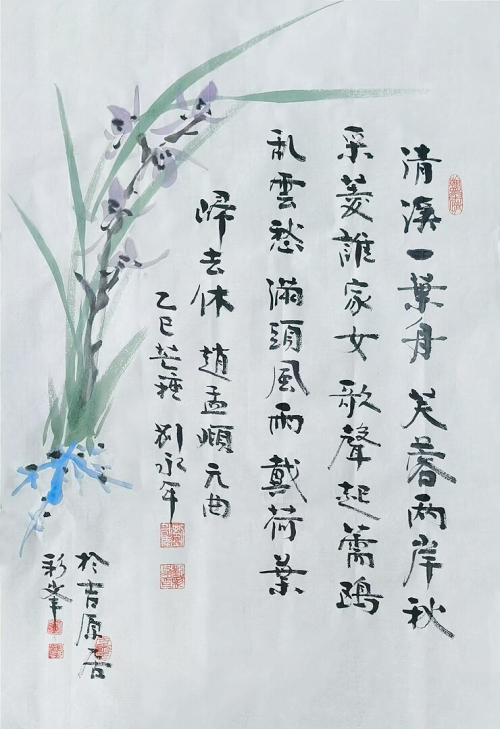 清溪一葉舟 芙蓉两岸秋
采菱誰家女 歌聲起暮鷗
乱雲愁 滿頭風雨 戴荷葉
歸去休 趙孟順元曲
乙巳芒種 刘永年
於吉原居
彩峯